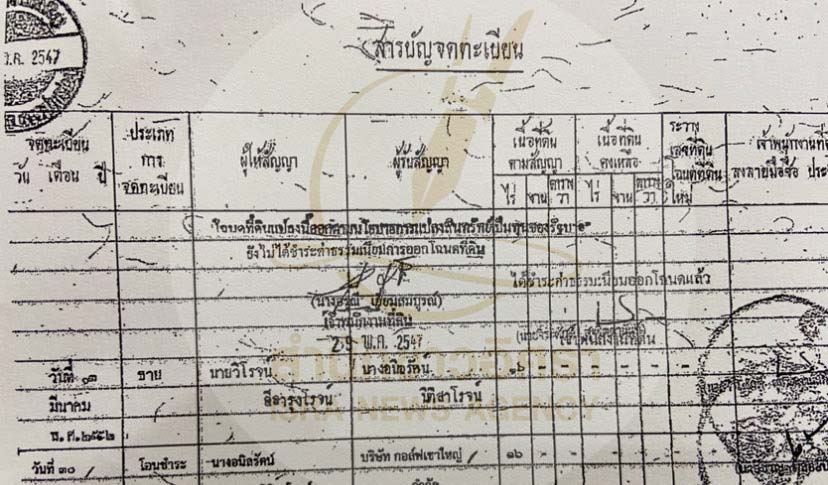 ม.ค. 2547
สารบัญจดทะเบียน
จดทะเบียน
วัน เดือน ปี
ประเภท
การ
จดทะเบียน
ผู้ให้สัญญา
ผู้รับสัญญา
เนื้อที่ดิน
ตามสัญญา
ไร่ งาน ตาราง
วา
เนื้อที่ดิน
คงเหลือ
ไร่ งาน ตาราง
วา
ระวาง
เลขที่ดิน
โฉนดที่ดิน
ใหม่
เจ้าพนักงานที่ดิน
ลงลายมือชื่อ
โฉนดที่ดินแปลงนี้ออกตามนโยบายการแปลงสินทรัพย์เป็นทุนของรัฐบาล
ยังไม่ได้ชำระค่าธรรมเนียมการออกโฉนดที่ดิน
ได้ชำระค่าธรรมเนียมออกโฉนดแล้ว
เจ้าพนักงานที่ดิน
พ.ค. 2547
สำนักข่าวอิศรา
ISRA NEWS AGENCY
วันที่ ๑๒ ขาย นายวิโรจน์ นางอนิลรัตน์ ๑๖ - - - - -
มีนาคม ลีลารุ่งโรจน์ นิติสาโรจน์
พ.ศ.๒๕๕๒
วันที่ ๓๐ โอนชำระ นางอนิลรัตน์ บริษัท กอล์ฟเขาใหญ่ ๑๖ - - - - -
จำกัด